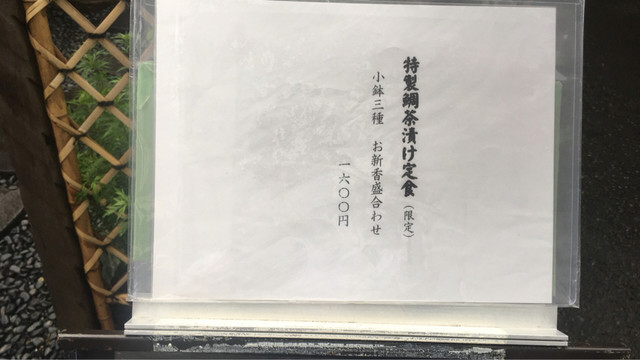 特製鯛茶漬け定食（限定）
小鉢三種　お新香盛合わせ
一六〇〇円